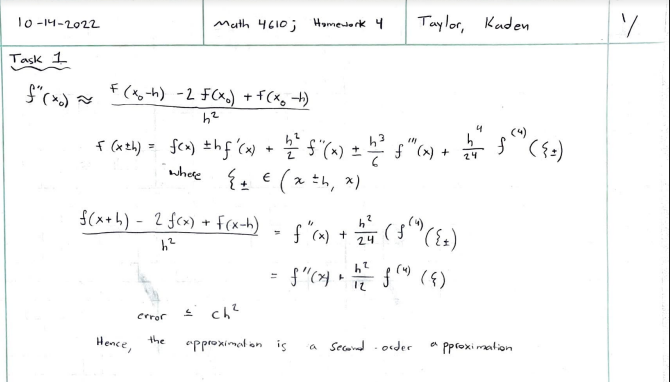 10-14-2022 Math 4610; Homework 4 Taylor, Kaden 1/
Task 1
f''(x₀) ≈ (F(x₀-h) - 2F(x₀) + F(x₀-h)) / h²
F(x±h) = f(x) ± hf'(x) + h²/2 f''(x) ± h³/6 f'''(x) + h⁴/24 f⁽⁴⁾(ξ±)
where ξ± ∈ (x±h, x)
(f(x+h) - 2f(x) + F(x-h)) / h² = f''(x) + h²/24 (f⁽⁴⁾(ξ±)
= f''(x) + h²/12 f⁽⁴⁾(ξ)
error ≤ ch²
Hence, the approximation is a second-order approximation